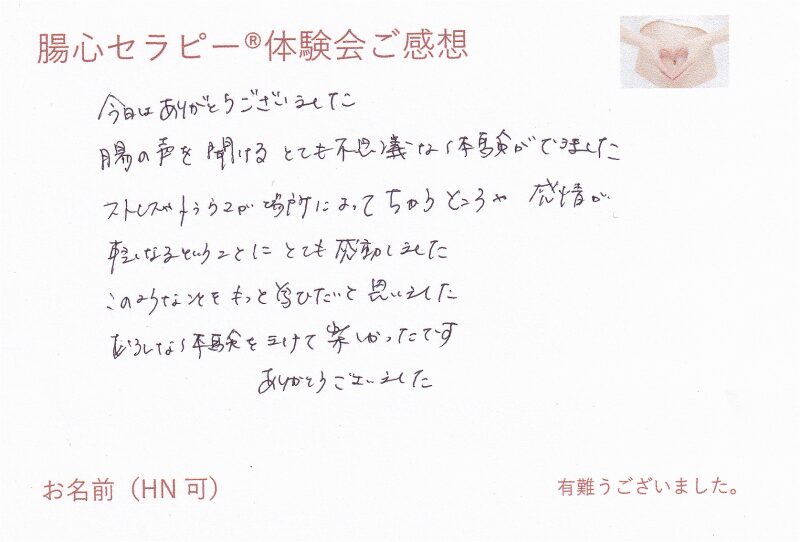 腸心セラピー®体験会ご感想
今日はありがとうございました
腸の声を聞ける とても不思議な体験ができました
ストレスや が場所によってちがうところや 感情が
軽くなるということに とても感動しました
このようなことをもっと学びたいと思いました
ふしぎな体験をうけて楽しかったです
ありがとうございました
お名前（HN 可）
有難うございました。